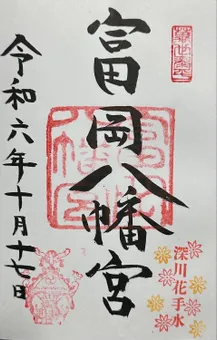 富岡八幡宮
深川花手水
令和六年十月十七日